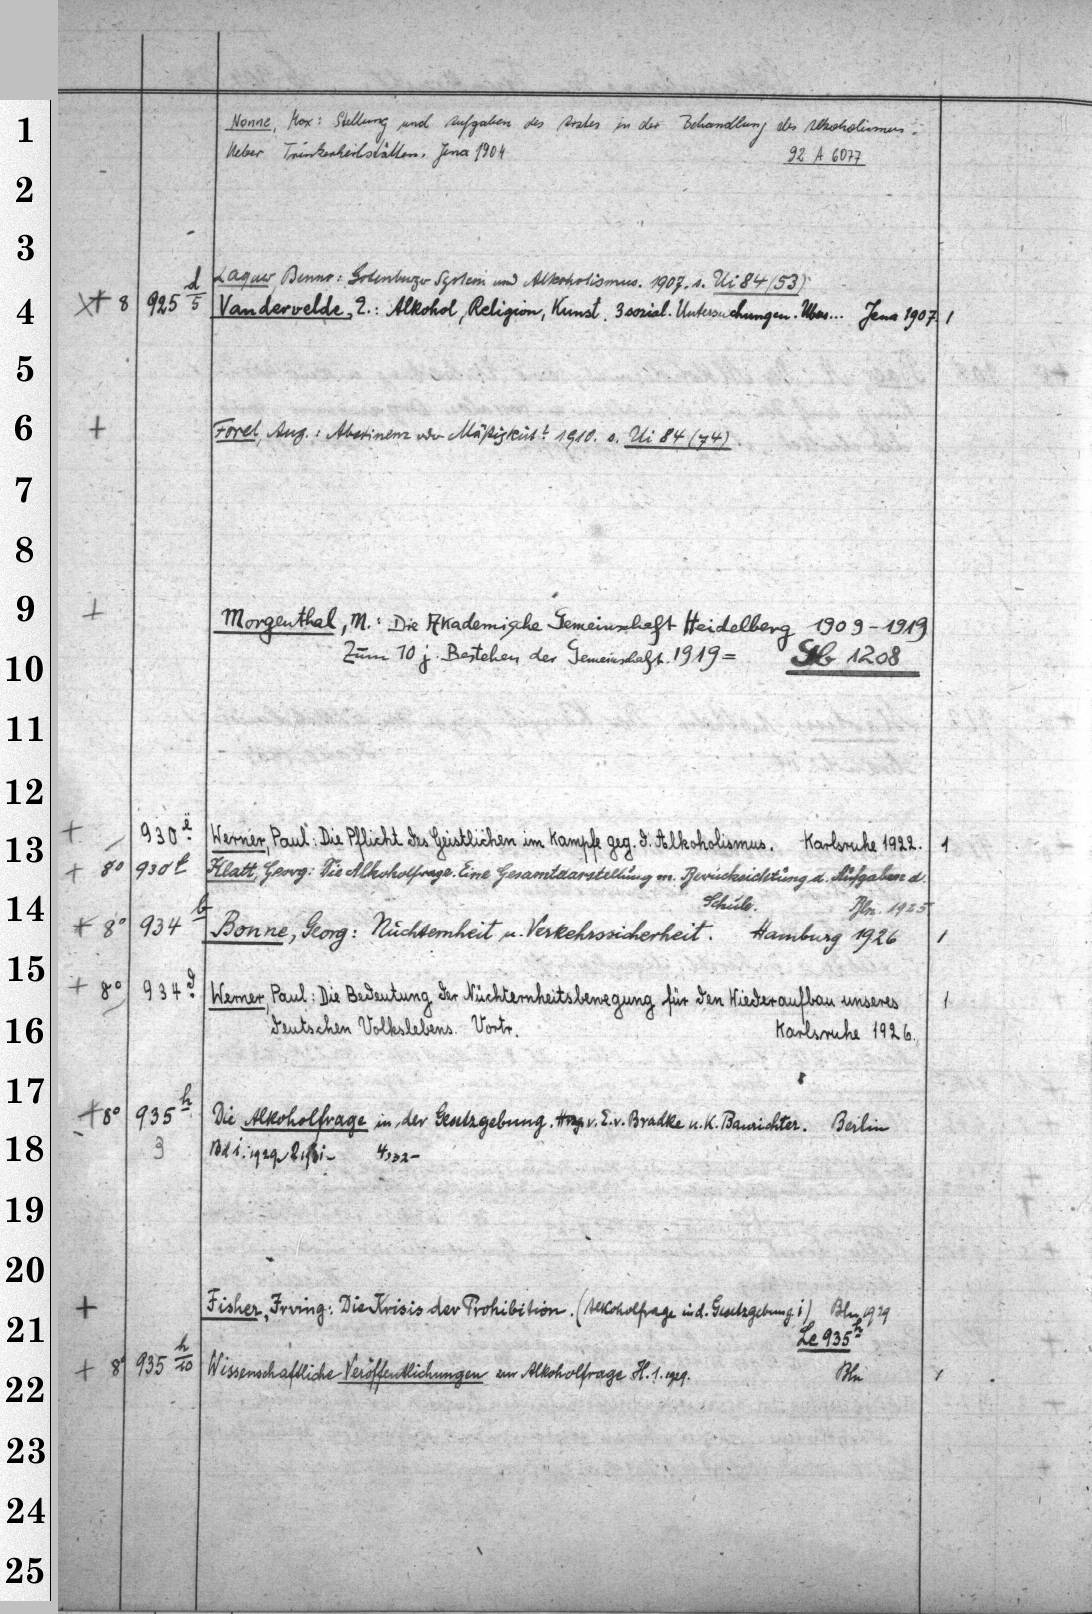 1
Nonne, Max: Stellung und Aufgaben des Arztes in der Behandlung des Alkoholismus.
Ueber Trinkerheilstätten. Jena 1904 92 A 6077
2
3
Laquer, Benno: Gotenburger System und Alkoholismus. 1907. s. Ui 84 (53)
4 + 8 925 d/5 Vandervelde, E.: Alkohol, Religion, Kunst. 3 sozial. Untersuchungen. Jena 1907. 1
5
6 + Forel, Aug.: Abstinenz oder Mäßigkeit 1910. s. Ui 84 (74).
7
8
9 + Morgenthal, M.: Die Akademische Gemeinschaft Heidelberg 1909-1919
10 Zum 10 j. Bestehen der Gemeinschaft. 1919 = 1208
11
12
13 + 930 e Werner, Paul: Die Pflicht des Geistlichen im Kampfe geg. d. Alkoholismus. Karlsruhe 1922. 1
+ 8° 930 f Klatt, Georg: Die Alkoholfrage. Eine Gesamtdarstellung m. Berücksichtigung d. Aufgaben d.
14 Schule. Bln. 1925
+ 8° 934 b Bonne, Georg: Nüchternheit u. Verkehrssicherheit. Hamburg 1926 1
15 + 8° 934 d Werner, Paul: Die Bedeutung der Nüchternheitsbewegung für den Wiederaufbau unseres 1
16 deutschen Volkslebens. Vortr. Karlsruhe 1926.
17
+ 8° 935 h Die Alkoholfrage in der Gesetzgebung. Hrsg. v. E. v. Bradke u. K. Baurichter. Berlin
18 3 Bd 1. 1929
19
20
+ Fisher, Irving: Die Krisis der Prohibition. (Alkoholfrage in d. Gesetzgebung 1) Bln 1929
21 Le 935 h
22 + 8° 935 h/10 Wissenschaftliche Veröffentlichungen zur Alkoholfrage H. 1. 1929. Bln 1
23
24
25